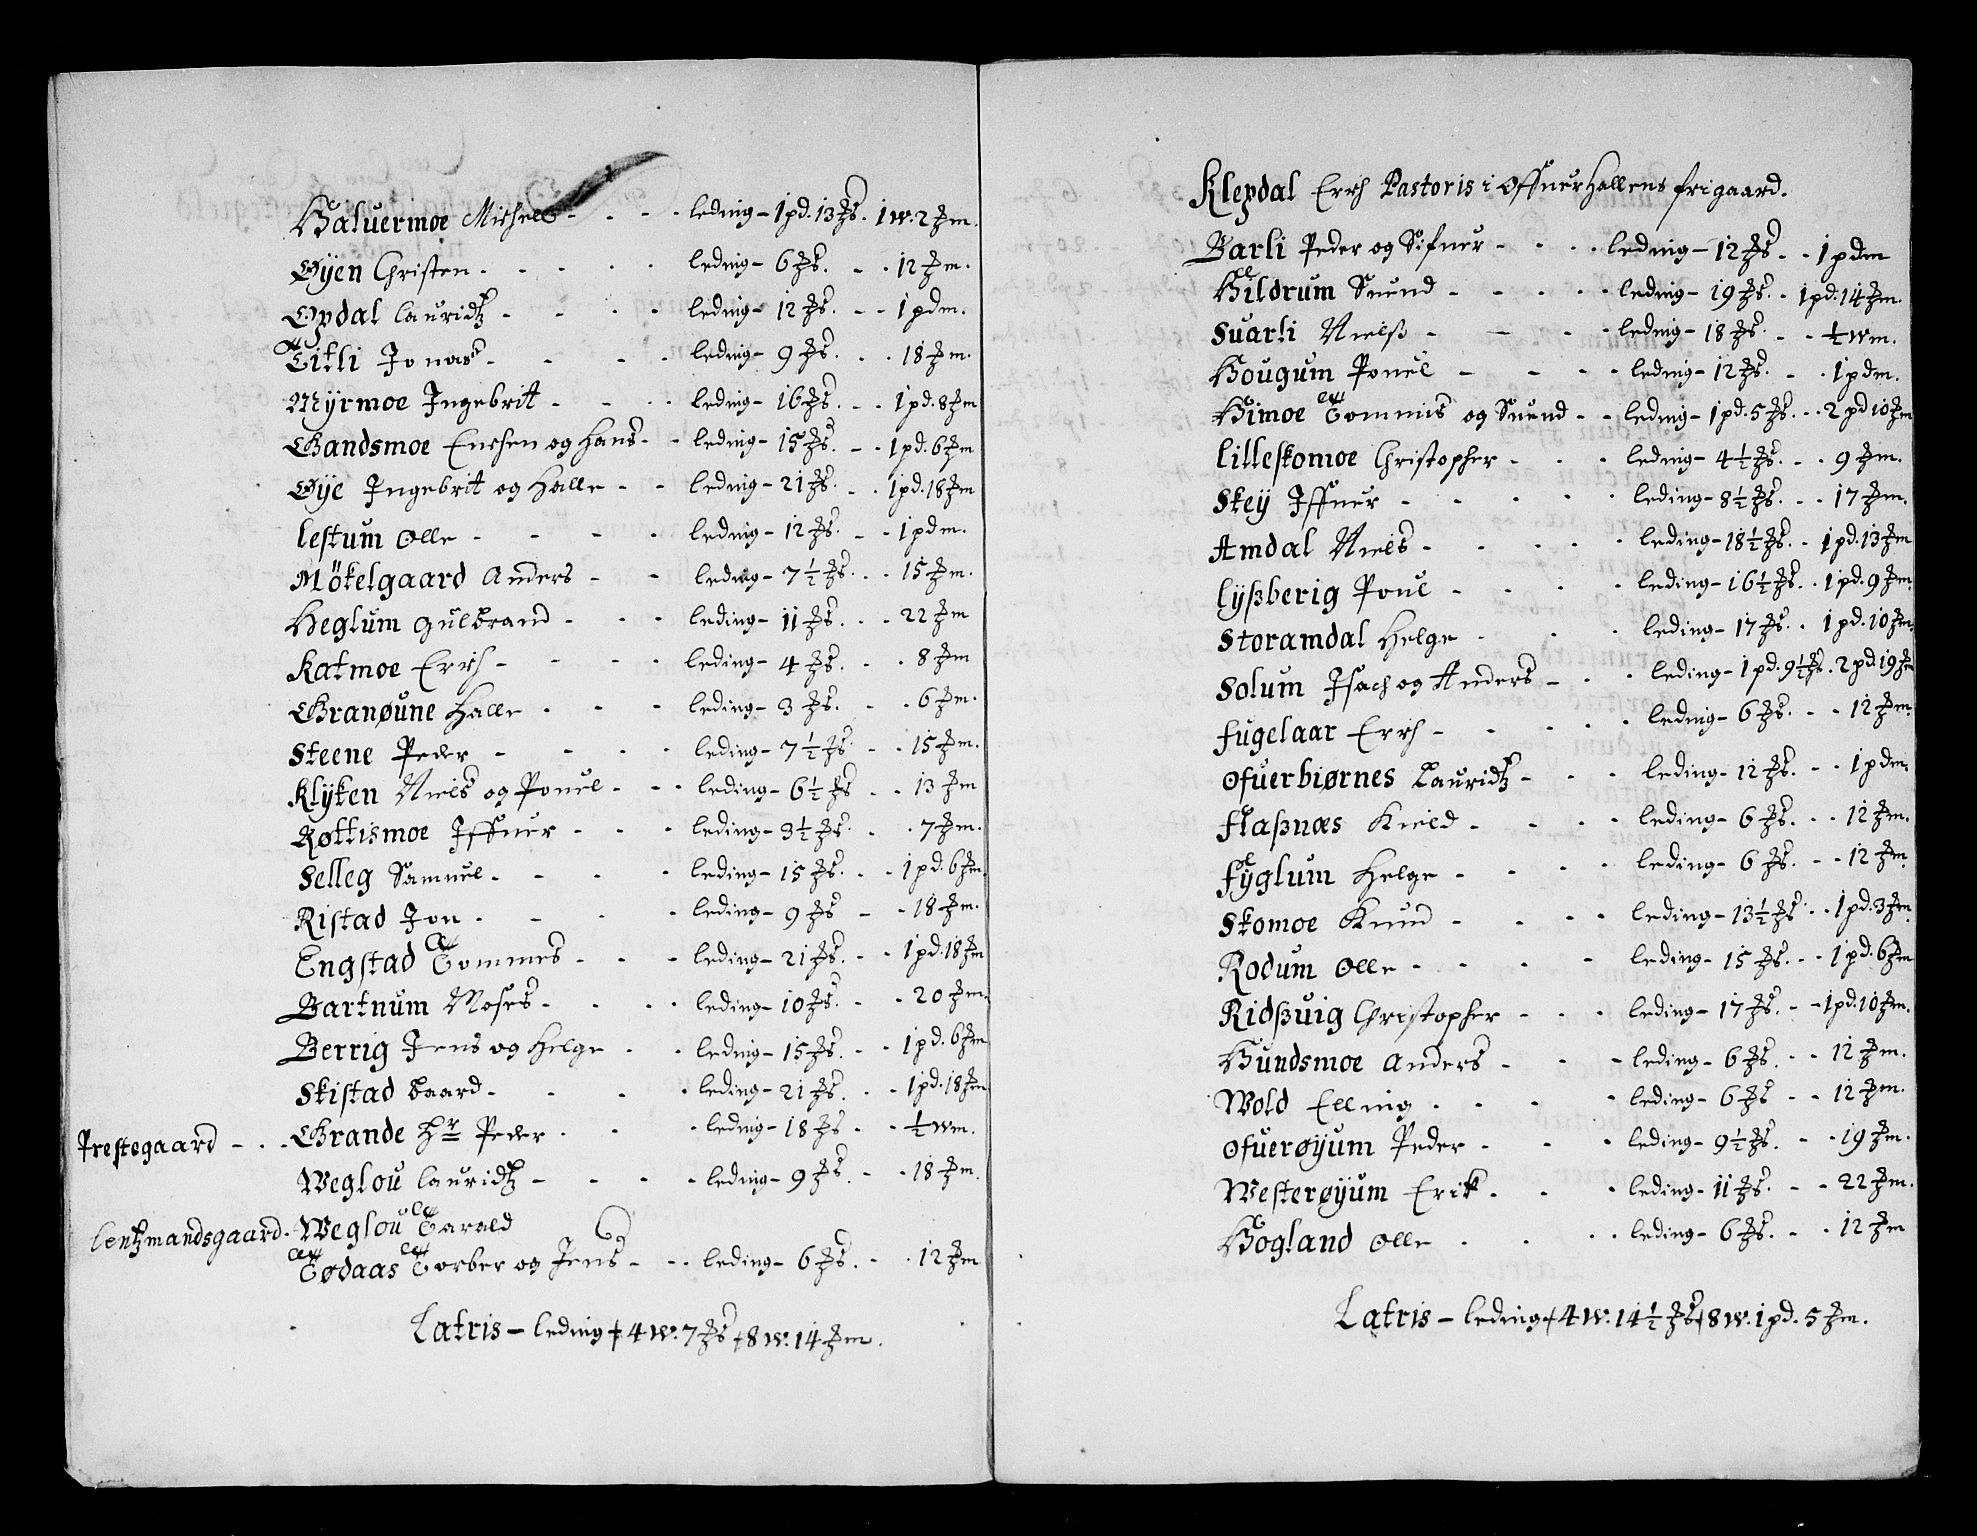 Haluermoe Michell - - - - leding - 1 pd. 13 ℔s. 1 w. 2 ℔m.
Øÿen Christen. - - - - leding - 6 ℔s. - - 12 ℔m.
Opdal Lauridtz - - - - leding - 12 ℔s. - - 1 pdm.
Titli Jonas - - - - leding - 9 ℔s. - - 18 ℔m.
Mÿrmoe Ingebrit - - - - leding - 16 ℔s. - - 1 pd. 8 ℔m
Gandsmoe Enchen og Hans - - leding - 15 ℔s. - - 1 pd. 6 ℔m
Øÿe Ingebrit og Halle - - leding - 21 ℔s. - - 1 pd. 18 ℔m
Lestum Olle - - - - leding - 12 ℔s. - - 1 pdm.
Mökelgaard Anders - - leding - 7 ½ ℔s. - - 15 ℔m.
Heglum Gulbrand - - - leding - 11 ℔s. - - 22 ℔m
Katmoe Erich - - - - leding - 4 ℔s. - - 8 ℔m
Granøune Halle - - - leding - 3 ℔s. - - 6 ℔m.
Steene Peder - - - - leding - 7 ½ ℔s - - 15 ℔m.
Klÿken Niels og Pouel - - - leding - 6 ½ ℔s - - 13 ℔m
Røttismoe Iffuer - - - leding - 3 ½ ℔s. - - 7 ℔m.
Selleg Samuel - - - - leding - 15 ℔s. - - 1 pd. 6 ℔m.
Ristad Jon - - - - leding - 9 ℔s - - 18 ℔m.
Engstad Tommes - - - leding - 21 ℔s. - - 1 pd. 18 ℔m
Bartnum Moses - - - - leding - 10 ℔s. - - 20 ℔m.
Berrig Jens og Helge - - leding - 15 ℔s. - - 1 pd. 6 ℔m
Skistad Baard - - - - leding - 21 ℔s. - - 1 pd. 18 ℔m
Prestegaard - - - Grande Hr Peder - - - leding - 18 ℔s - - ½ wm.
Weglou Lauridtz - - - - leding - 9 ℔s. - - 18 ℔m.
Lentzmandsgaard. Weglou Tarald
Tødaas Torber og Jens - - - leding - 6 ℔s. - - 12 ℔m
Latris - leding + 4 w. 7 ℔s + 8 w. 14 ℔m.
Klepdal Erich Pastoris i Offuerhallens frigaard.
Barli Peder og Sifuer - - - - leding - 12 ℔s - - 1 pdm
Hildrum Suend - - - - leding - 19 ℔s. - 1 pd. 14 ℔m.
Suarli Nielß - - - - leding - 18 ℔s. - - ½ wm.
Hougum Pouel - - - - leding - 12 ℔s. - - 1 pdm.
Himoe Tommis og Suend - - leding - 1 pd. 5 ℔s. - - 2 pd 10 ℔m
Lilleskomoe Christopher - - - leding - 4 ½ ℔s. - - 9 ℔m.
Skeÿ Iffuer - - - - leding - 8 ½ ℔s. - - 17 ℔m.
Amdal Niels - - - - leding - 18 ½ ℔s. - 1 pd. 13 ℔m
Lÿßberig Pouel - - - - leding - 16 ½ ℔s. - 1 pd. 9 ℔m.
Storamdal Helge - - - leding - 17 ℔s. - 1 pd. 10 ℔m.
Solum Isach og Anders - - - leding - 1 pd. 9 ½ ℔s. 2 pd. 19 ℔m
Fugelaar Erich - - - - leding - 6 ℔s. - - 12 ℔m.
Ofuerbiørnes Lauridtz - - - leding - 12 ℔s. - - 1 pdm.
Flaßnæs Kield - - - - leding - 6 ℔s. - - 12 ℔m.
Fÿglum Helge - - - - leding - 6 ℔s. - - 12 ℔m.
Skomoe Knud - - - - leding - 13 ½ ℔s - - 1 pd. 3 ℔m.
Rodum Olle - - - - leding - 15 ℔s. - - 1 pd. 6 ℔m
Ridßuig Christopher - - - leding - 17 ℔s. - - 1 pd. 10 ℔m.
Hundsmoe Anders - - - leding - 6 ℔s. - - 12 ℔m.
Wold Elling - - - - leding - 6 ℔s - - 12 ℔m.
Ofuerøÿum Peder - - - leding - 9 ½ ℔s. - - 19 ℔m.
Westerøÿum Erik - - - leding - 11 ℔s. - - 22 ℔m.
Hogland Olle - - - - leding - 6 ℔s. - - 12 ℔m
Latris - leding + 4 w. 14 ½ ℔s + 8 w. 1 pd. 5 ℔m.